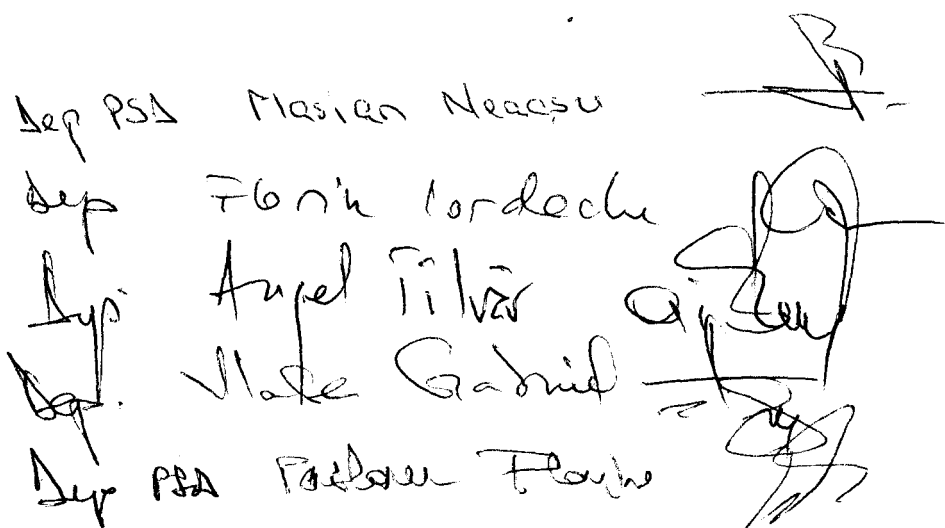 Dep PSD Marian Neacșu
Dep Florin Iordache
Dep Angel Tîlvăr
Dep. Vlase Gabriel
Dep PSD